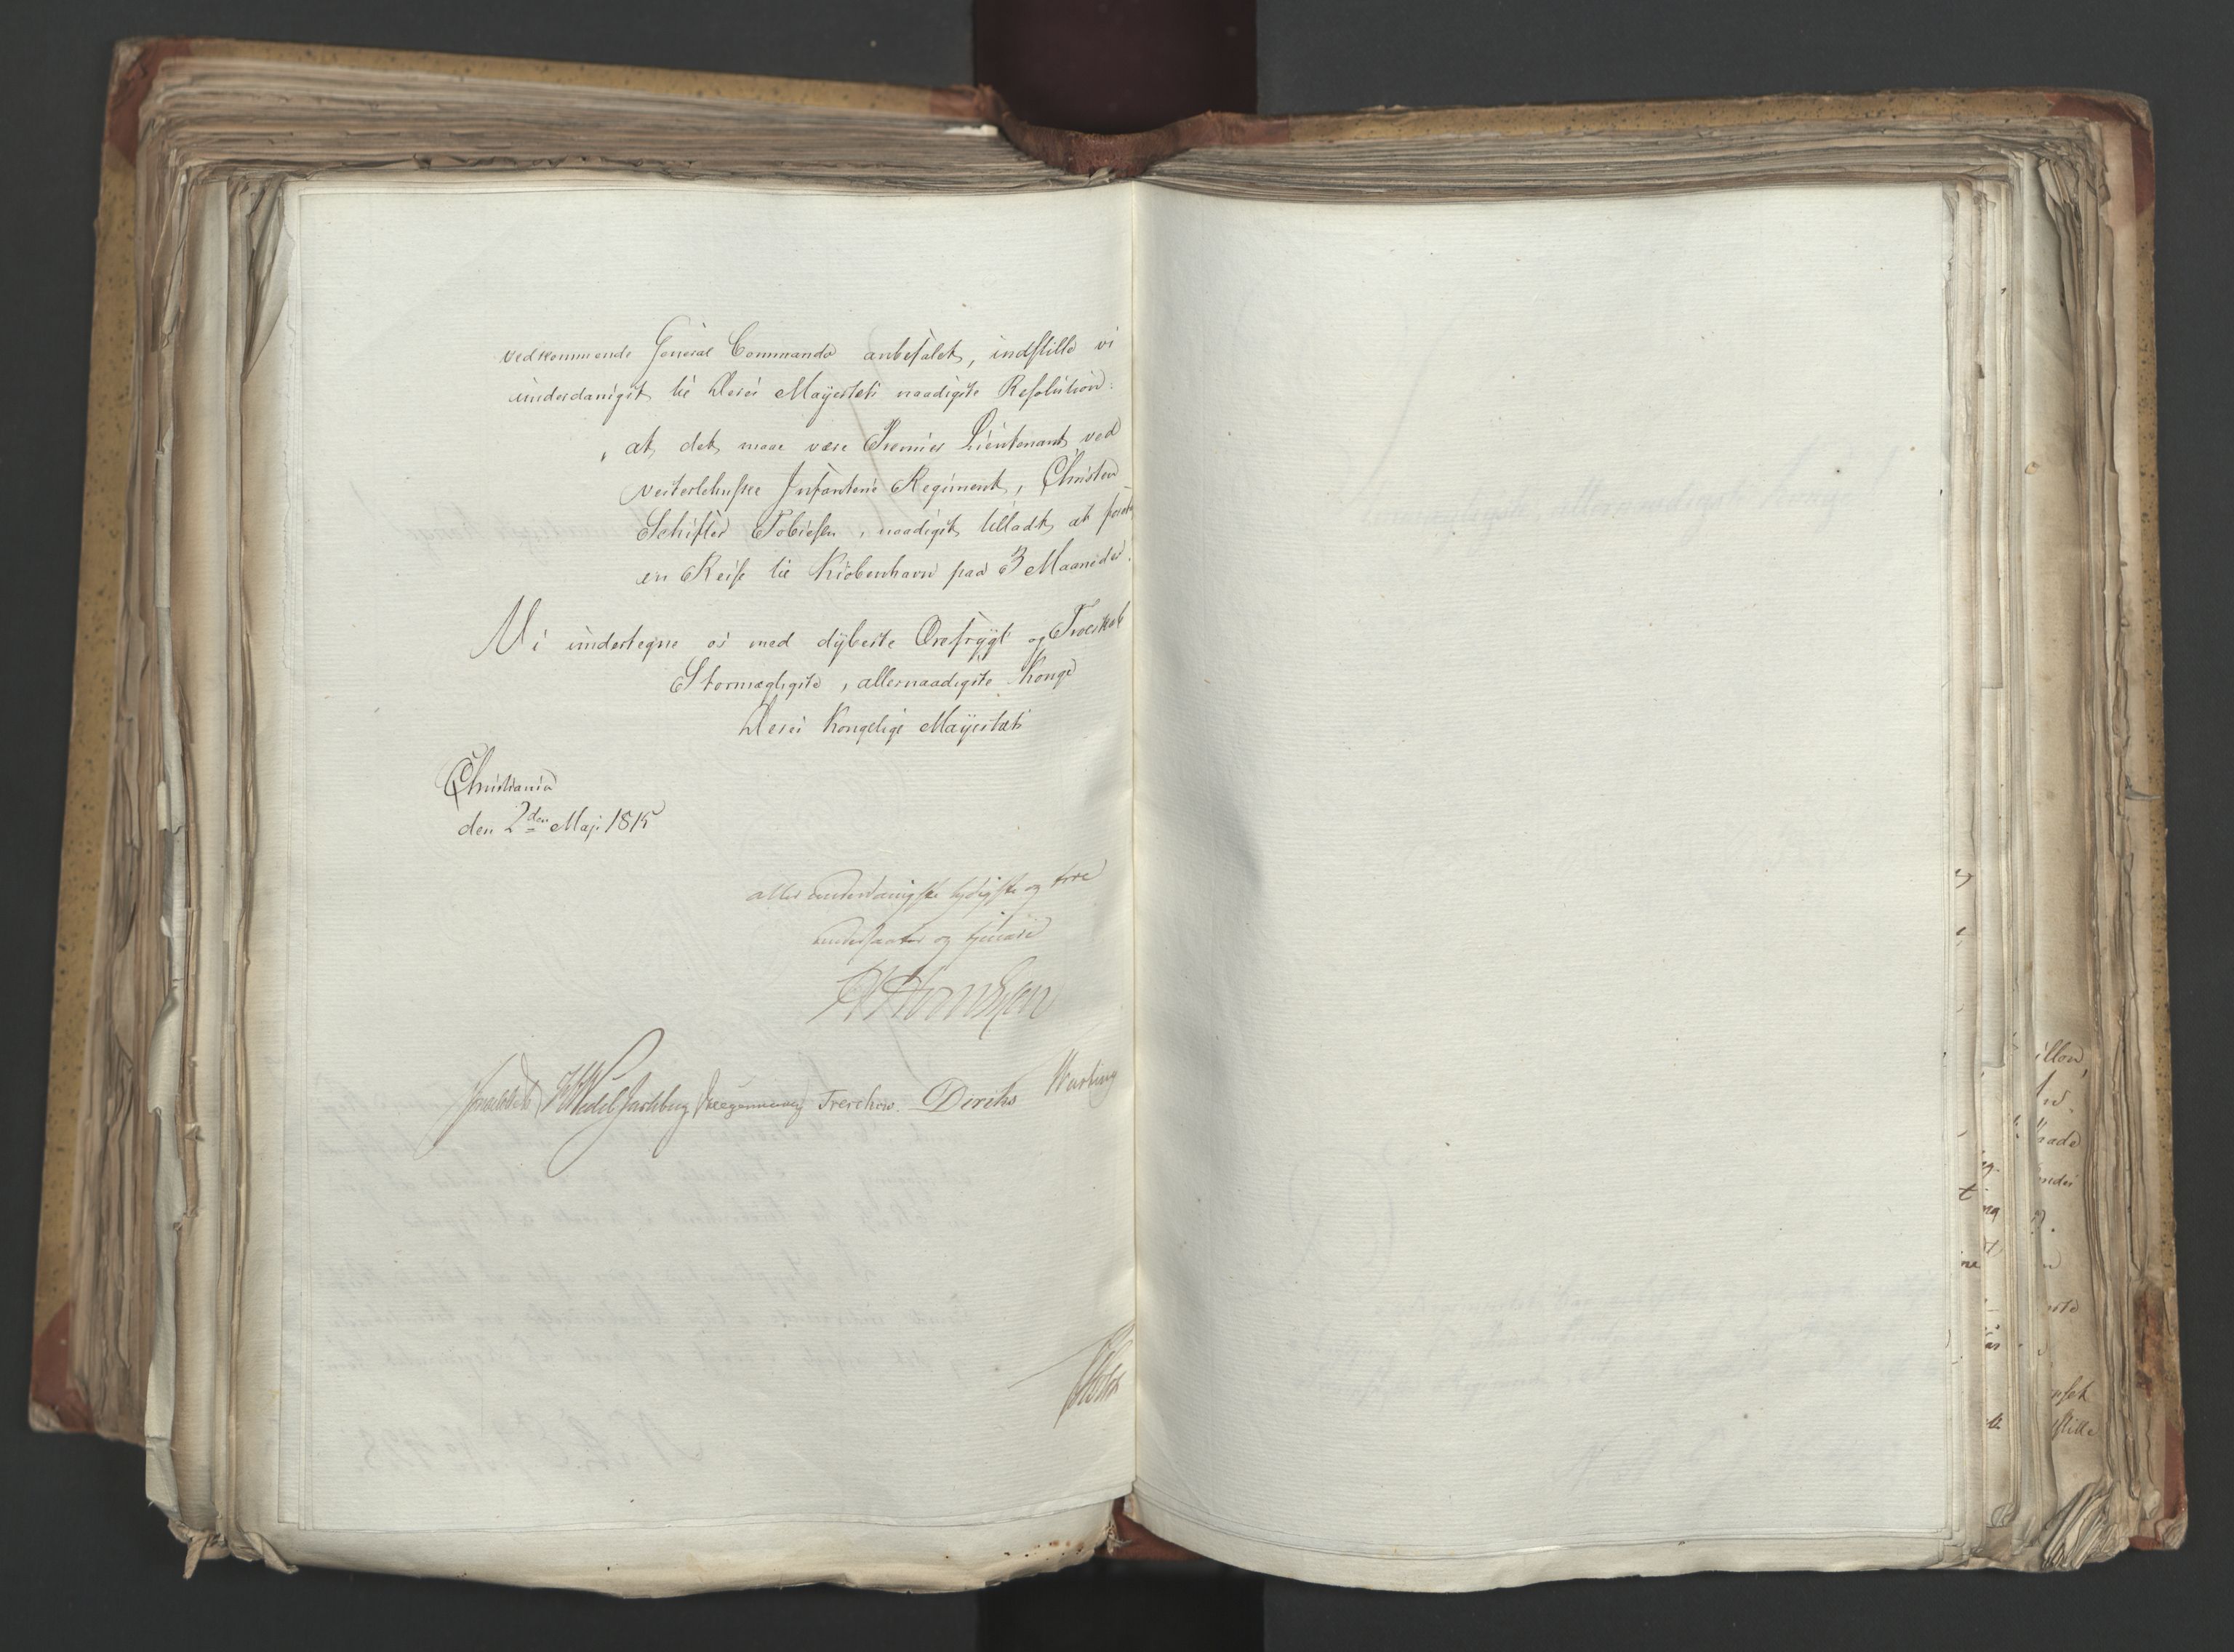 vedkommende General Commando anbefalet, indstille vi
underdanigst til Deres Mayestæts naadigste Resolution:
„at det maae være Premier Lieutenant ved
Vesterlehnske Infanterie Regiment, Christen
Schifter Tobiesen, naadigst tilladt at foretage
en Reise til Kiöbenhavn paa 3 Maaneder.
Vi undertegne os med dybeste Ærefrygt og Troeskab
Stormægtigste, allernaadigste Konge
Deres Kongelige Mayestæts
Christiania
den 2den Maji 1815
allerunderdanigste lydigste og troe
undersaatter og tjenere
Sommerhielm Wedel Jarlsberg Krogh Treschow. Diriks Hartwig
Holst